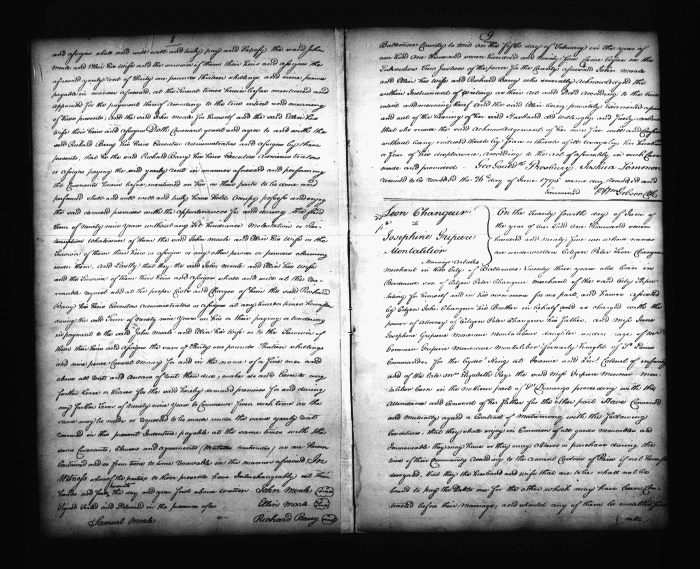 8
and assigns shall and will well and truly pay and satisfy the said John
Moale and Ellin his Wife and the survivor of them their heirs and assigns the
aforesaid yearly rent of thirty one pounds thirteen shillings and nine pence
payable in manner aforesaid, at the several times herein before mentioned and
appointed for the payment thereof according to the true intent and meaning
of these presents, and the said John Moale for himself and the said Ellin his
wife their heirs and assigns Doth Covenant grant and agree to and with the
said Richard Barry his heirs Executors administrators and assigns by these
presents, that he the said Richard Barry his heirs Executors administrators
or assigns paying the said yearly rent in manner aforesaid and performing
the Covenants herein before mentioned on his or their parts to be done and
performed shall and will well and truly have hold occupy possess and enjoy
the said demised premises with the appurtenances for and during the said
term of ninety nine years without any let hindrance molestation or
interruption whatsoever of them the said John Moale and Ellin his Wife or the
survivor of them their heirs or assigns or any other person or persons claiming
under them. and thirdly that they the said John Moale and Ellin his Wife
and the survivor of them their heirs and assigns shall and will at the
request and at the proper Costs and Charges of him the said Richard
Barry his heirs Executors administrators or assigns at any time or times hereafter
during the said term of ninety nine years on his or their paying or tendering
in payment to the said John Moale and Ellin his Wife or the survivor of
them their heirs and assigns the sum of thirty one pounds thirteen shillings
and nine pence Current money for and in the name of a fine over and
above all rent and arrears of rent then due, make and execute
further lease or leases for the said hereby demised premises for and during
any further term of ninety nine years to commence from such time as the
same may be made or required to be made under the same yearly rent
reserved in this present Indenture payable at the same times with the
same Covenants, Clauses and agreements (mutatis mutandis) as are herein
contained and so from time to time renewable in the manner aforesaid. In
Witness whereof the parties to these presents have Interchangeably set their
hands and seals the day and year first above written John Moale (Seal)
Signed Sealed and Delivered in the presence of Ellin Moale (Seal)
Samuel Moale Richard Barry (Seal)
9
Baltimore County to wit on the fifth day of February in the year of
our Lord one thousand seven hundred and ninety Came before us the
Subscribers two Justices of the peace for the County aforesaid John Moale
and Ellin his Wife and Richard Barry who severally acknowledged the
within Instrument of writing as their Act and Deed according to the true
intent and meaning thereof and the said Ellin being privately examined apart
and out of the hearing of her said Husband did willingly and freely declare
that she made the said acknowledgement of her own free will and
without being induced thereto by fear or threats of ill usage by her husband
or fear of his displeasure, according to the act of assembly in such Case
made and provided. Geo Gould Presbury Joshua
received to be recorded the 26th day of June 1795 same day recorded and
examined Wm Gibson Clk
Leon Changeur
To
Josephine Gripiere
Montalibor
Marriage Articles
On the twenty fourth day of June of
the year of our Lord one thousand seven
hundred and ninety five
Citizen Peter Leon Changeur
Merchant in this City of Baltimore twenty three years old born in
Bordeaux son of Citizen Peter Changeur Merchant of the said City
taking for himself and in his own name for one part, and
by Citizen John Changeur his Brother in behalf and as charged with the
power of Attorney of Citizen Peter Changeur his father, and Miss Jane
Josephine Gripiere Moncroc Montalibor daughter under age of Mr
Gripiere Moncroc Montalibor formerly Knight of St Louis
Commander for the
and of the late Mrs Elizabeth Rey the said Miss Gripiere Moncroc
born in the northern part of St Domingo proceeding with the
attendance and consent of her father for the other part. Have Covenanted
and mutually agreed a Contract of Matrimony with the following
Conditions, that they shall enjoy in Common of all goods moveables and
immoveable they may have or they may obtain or purchase during the
time of their community according to the ancient Customs of Paris
that they the husband and wife that are to be shall not be
bound to pay the Debts one for the other which may have been
contracted before their marriage, and should any of them be